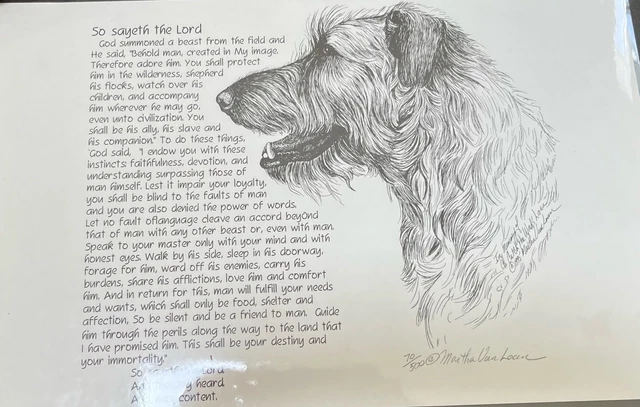 So sayeth the Lord
God summoned a beast from the field and
He said, "Behold man, created in My image.
Therefore adore him. You shall protect
him in the wilderness, shepherd
his flocks, watch over his
children, and accompany
him wherever he may go,
even unto civilization. You
shall be his ally, his slave and
his companion." To do these things,
God said, "I endow you with these
instincts: faithfulness, devotion, and
understanding surpassing those of
man himself. Lest it impair your loyalty,
you shall be blind to the faults of man
and you are also denied the power of words.
Let no fault oflanguage cleave an accord beyond
that of man with any other beast or, even with man.
Speak to your master only with your mind and with
honest eyes. Walk by his side, sleep in his doorway,
forage for him, ward off his enemies, carry his
burdens, share his afflictions, love him and comfort
him. And in return for this, man will fulfill your needs
and wants, which shall only be food, shelter and
affection, So be silent and be a friend to man. Guide
him through the perils along the way to the land that
I have promised him. This shall be your destiny and
your immortality."
So Lord
heard
content.
70/500 © Martha Van Loan